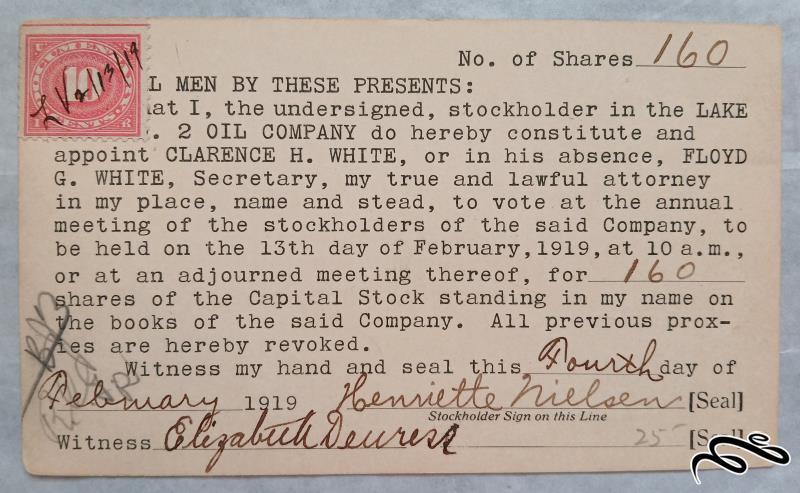 No. of Shares 160
L MEN BY THESE PRESENTS:
at I, the undersigned, stockholder in the LAKE
. 2 OIL COMPANY do hereby constitute and
appoint CLARENCE H. WHITE, or in his absence, FLOYD
G. WHITE, Secretary, my true and lawful attorney
in my place, name and stead, to vote at the annual
meeting of the stockholders of the said Company, to
be held on the 13th day of February, 1919, at 10 a.m.,
or at an adjourned meeting thereof, for 160
shares of the Capital Stock standing in my name on
the books of the said Company. All previous prox-
ies are hereby revoked.
Witness my hand and seal this Fourth day of
February 1919 Henriette Nielsen [Seal]
Stockholder Sign on this Line
Witness Elizabeth 25
DOCUMENTARY
10
CENTS
2/13/19